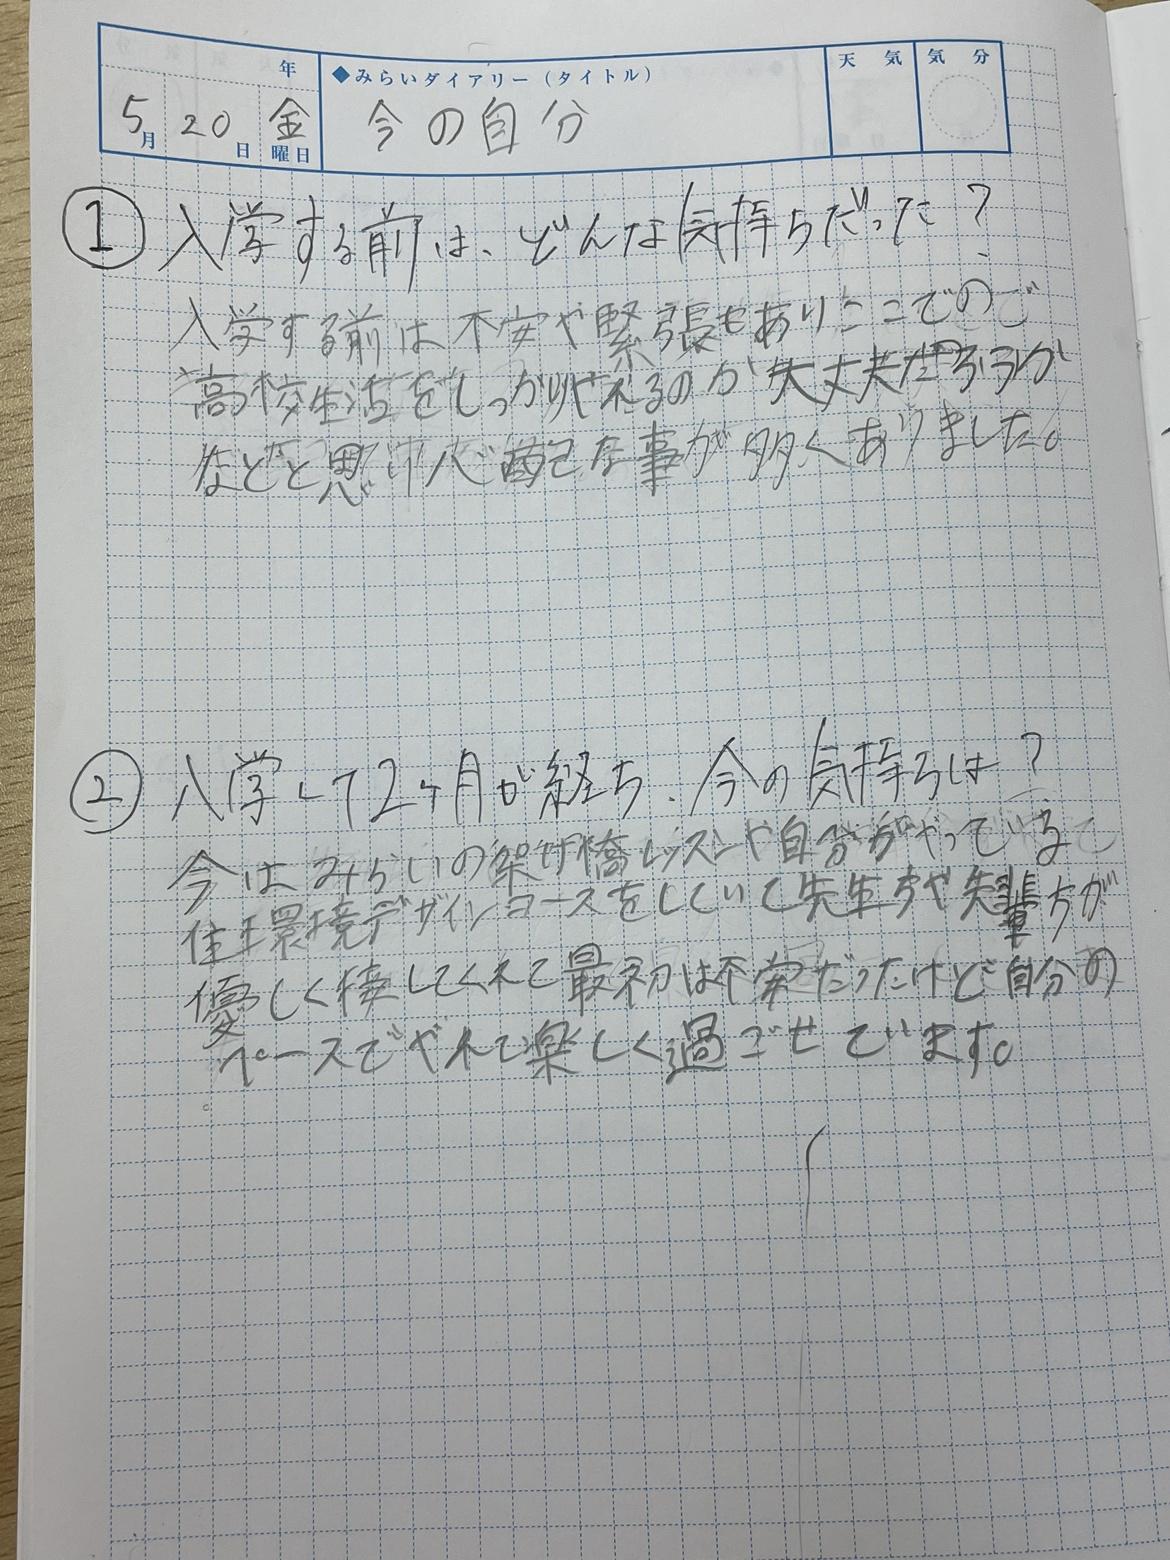 年
◆みらいダイアリー(タイトル)
天気
気分
5月20日金曜日
今の自分
① 入学する前は、どんな気持ちだった?
入学する前は不安や緊張もありここでので
高校生活をしっかりやれるのが大丈夫だろうか
などと思い心配な事が多くありました。
② 入学して2ヶ月が経ち、今の気持ちは?
今はみらいの架け橋レッスンや自分がやっている
住環境デザインコースをしていて先生方や先輩方が
優しく接してくれて最初は不安だったけど自分の
ペースでやれて楽しく過ごせています。